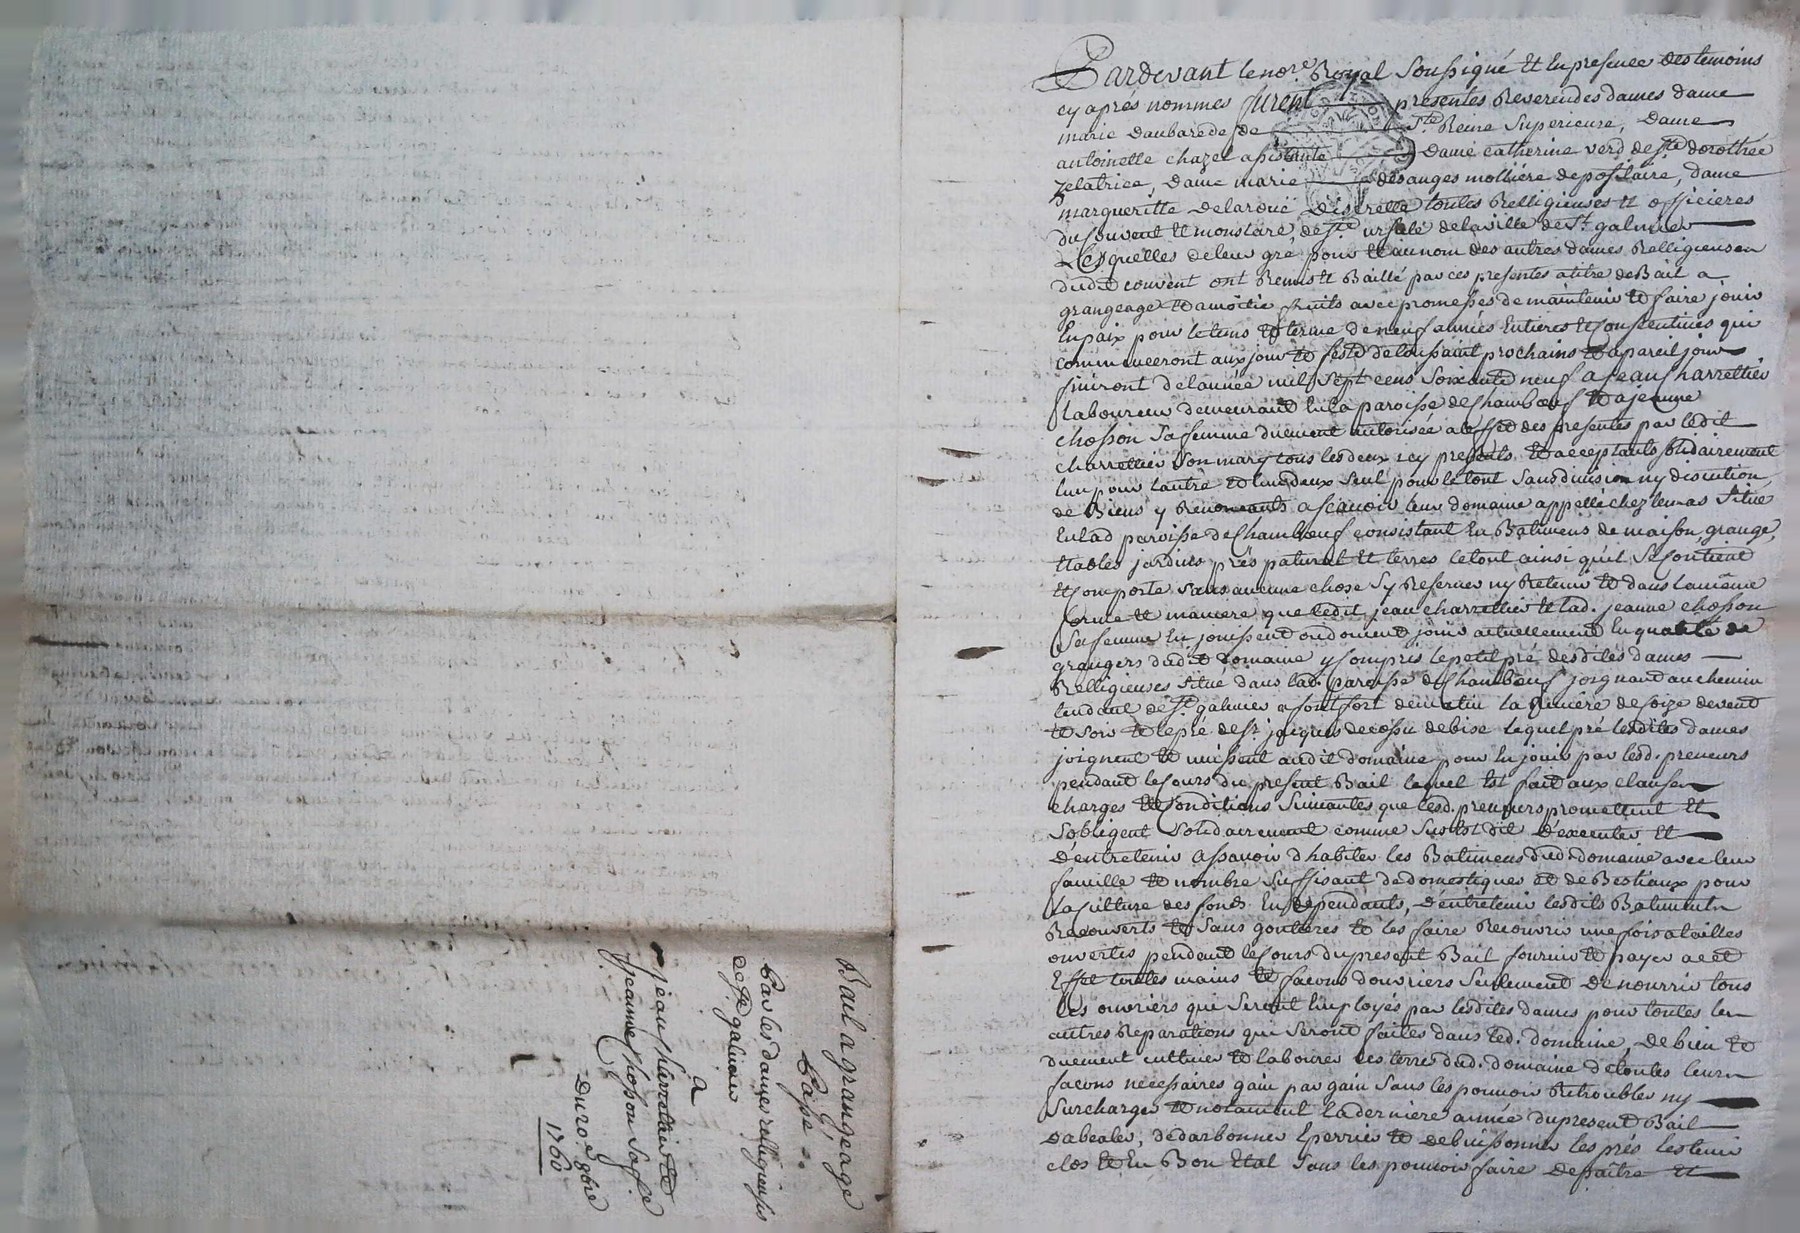 Pardevant le nore. Royal soussigné et en presence des temoins
cy aprés nommes furent presentes Reverendes dames dame
marie daubarede de Ste. Reine Superieure, Dame
antoinette chazel assistante Dame catherine verd de Ste dorothée
zelatrice, Dame marie des anges molliere depositaire, dame
margueritte Delaroüe Discrette toutes Relligieuses et officieres
du Couvent et monstaire de Ste ursule de la ville de St. galmier
Lesquelles de leur gré pour et au nom des autres dames Relligieuses
dudit couvent ont Remis et Baillé par ces presentes a titre de Bail a
grangeage et a moitié fruits avec promesses de maintenir et faire jouir
En paix pour le tems et terme de neuf années Entieres et Consecutives qui
commenceront aux jour et feste de toussaint prochains et a pareil jour
finiront de l'année mil sept cens soixante neuf a jean Charrettier
laboureur demeurant En la paroisse de Chambœuf et a jeanne
chosson sa femme duement autorisée a l'effet des presentes par ledit
charrettier son mary tous les deux icy presents et acceptants solidairement
l'un pour l'autre et l'un deux seul pour le tout sans division ny discution
de Biens y Renonçants a sçavoir leur domaine appellé chez lemas situé
En lad paroisse de Chambœuf consistant En Batimens de maison, grange,
Etables jardins prés patural et terres le tout ainsi qu'il se Contient
et Comporte sans aucune chose s'y Reserver ny Retenir et dans la même
forme et maniere que ledit jean charrettier et lad. jeanne chosson
sa femme En jouissent ou doivent jouir actuellement En qualité de
grangers dudit Domaine y Compris le petit pré desdites dames
Relligieuses situé dans lad. Paroisse de Chambœuf joignant au chemin
tendant de St. galmier a fontfort de matin la Riviere de Coize de vent
et soir et le pré de Sr. jacques de bise lequel pré lesdites dames
joignent et unissent audit domaine pour En jouir par lesd. preneurs
pendant le Cours du present Bail lequel Est fait aux clauses
charges et Conditions suivantes que lesd. preneurs promettent et
s'obligent solidairement comme sus Est dit D'executer et
D'entretenir assavoir d'habiter les Batimens dud. domaine avec leur
famille et nombre suffisant de domestiques et de Bestiaux pour
la Culture des fonds En dependants, D'entretenir lesdits Batiments
Recouverts et sans goutieres et les faire Recouvrir une fois a tuilles
ouvertes pendant le Cours du present Bail fournir et payer a cet
Effet toutes mains et façons d'ouvriers seulement De nourrir tous
les ouvriers qui seront Employés par lesdites dames pour toutes les
autres Reparations qui seront faites dans led. domaine, De bien et
duement cultiver et labourer les terres dud. domaine de toutes leurs
façons necessaires gain par gain sans les pouvoir Retroubler ny
surcharger et notament la derniere année du present Bail
D'abealer, dedarbonner Eperrier et debuissonner les prés les tenir
clos et En Bon Etat sans les pouvoir faire depaître et
Bail a grangeage
Par les dames relligieuses
de St galmier
a
jean Charrettier et
jeanne Chosson Sa fe
Du 10e 9bre
1760